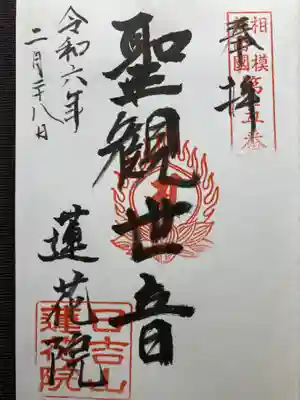 奉拝
相模
國
第五番
聖観世音
蓮花院
日吉山
蓮花院
令和六年
二月二十八日